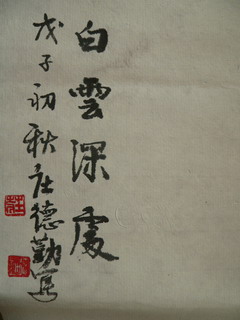 白雲深處
戊子初秋庄德勤寫